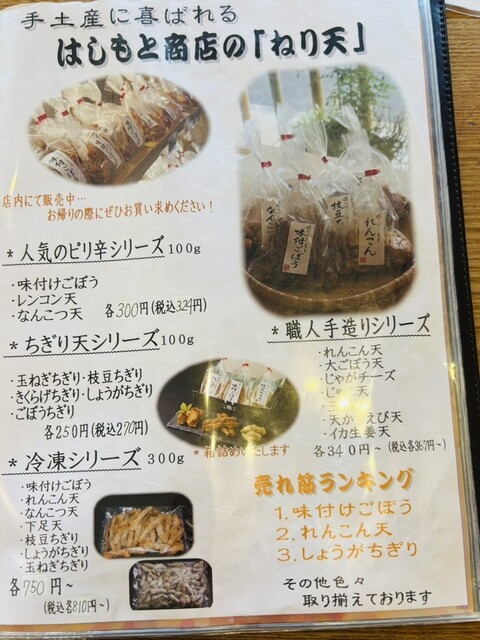 手土産に喜ばれる
はしもと商店の「ねり天」
店内にて販売中…
お帰りの際にぜひお買い求めください！
＊人気のピリ辛シリーズ 100g
・味付けごぼう
・レンコン天
・なんこつ天 各300円(税込324円)
＊ちぎり天シリーズ 100g
・玉ねぎちぎり・枝豆ちぎり
・きくらげちぎり・しょうがちぎり
・ごぼうちぎり
各250円(税込270円)
＊冷凍シリーズ 300g
・味付けごぼう
・れんこん天
・なんこつ天
・下足天
・枝豆ちぎり
・しょうがちぎり
・玉ねぎちぎり
各750円~
(税込各810円~)
なんこつ
味付ごぼう
枝豆
れんこん
＊職人手造りシリーズ
・れんこん天
・大ごぼう天
・じゃがチーズ
・天
・天か えび天
・イカ生姜天
各340円~(税込各367円~)
＊箱詰めいたします
売れ筋ランキング
1.味付けごぼう
2.れんこん天
3.しょうがちぎり
その他色々
取り揃えております